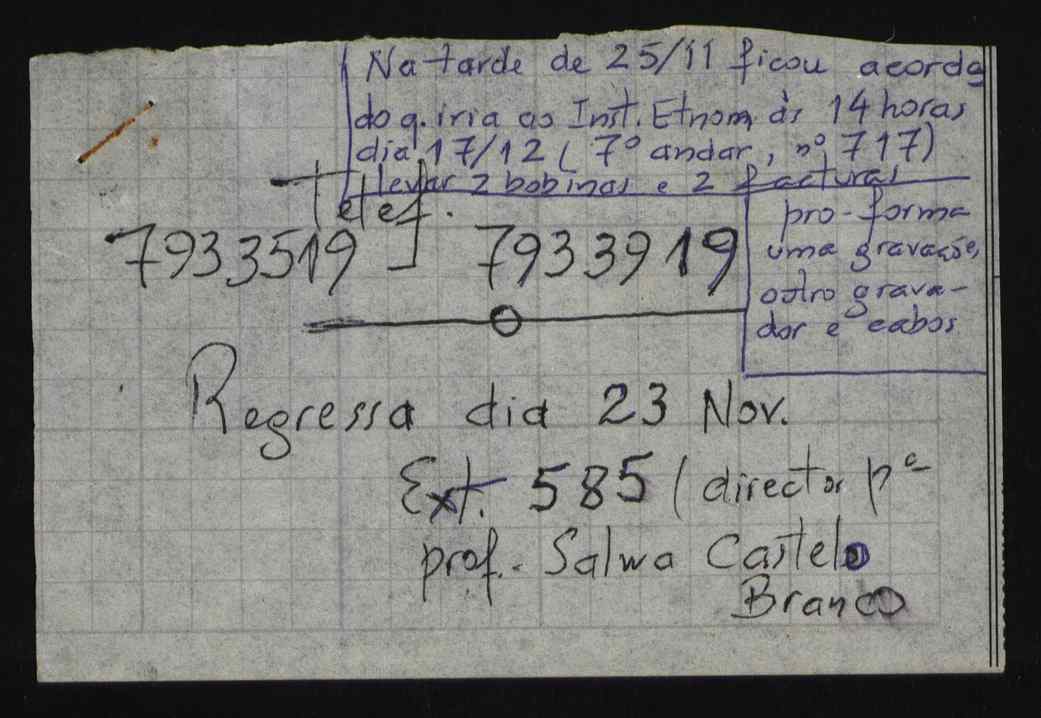 Na tarde de 25/11 ficou acorda
do q. iria ao Inst. Etnom. às 14 horas
dia 17/12 ( 7º andar, nº 717)
levar 2 bobinas e 2 facturas
pro-forma
uma gravação,
outro grava-
dor e cabos
Telef.
7933519 7933919
Regressa dia 23 Nov.
Ext. 585 ( director
prof. Salwa Castelo
Branco